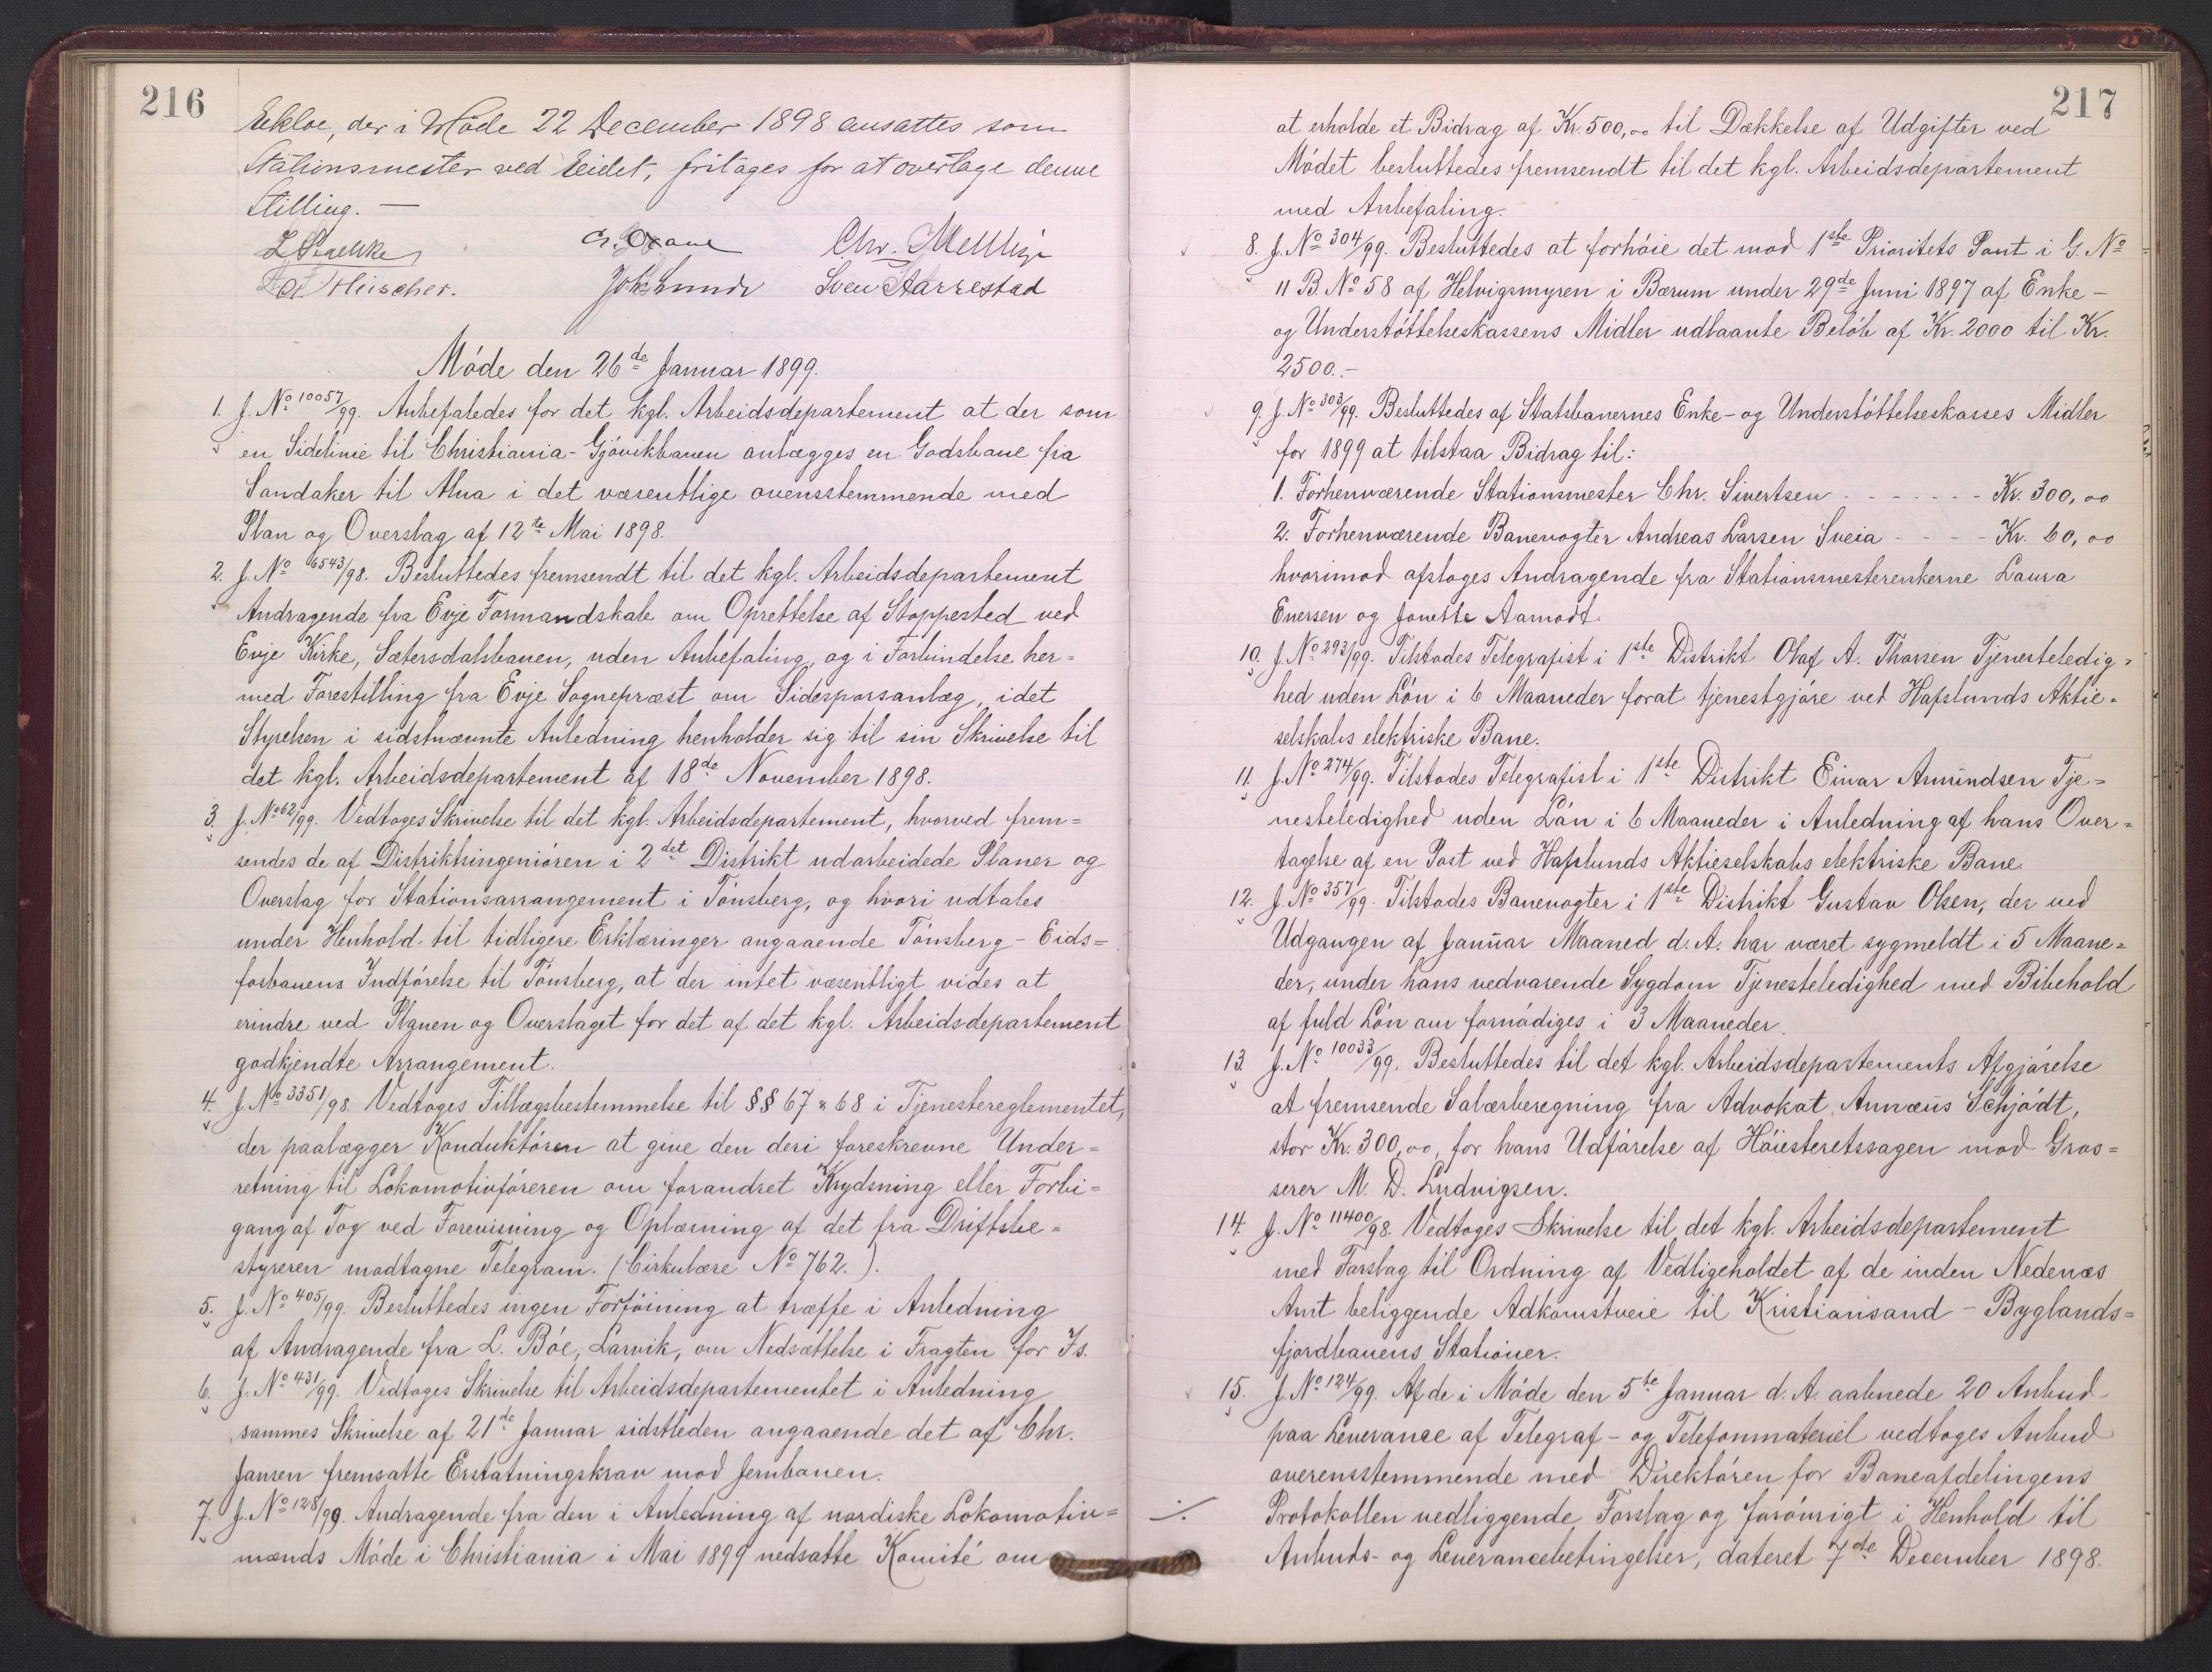 216
Eekloe, der i Møde 22 December 1898 ansattes som
Stationsmester ved Eidet, fritages for at overtage denne
Stilling. —
Chr.
Joh. Lunde Sven Aarrestad
Móde den 26de Januar 1899.
1. J. No 10057/99. Anbefaledes for det kgl. Arbeidsdepartement at der som
en Sidelinie til Christiania-Gjóvikbanen anlægges en Godsbane fra
Sandaker til Alna i det væsentlige overensstemmende med
Plan og Overslag af 12te Mai 1898.
2. J. No 6543/98. Besluttedes fremsendt til det kgl. Arbeidsdepartement
Andragende fra Evje Formandskab om Oprettelse af Stoppested ved
Evje Kirke, Sætersdalsbanen, uden Anbefaling, og i Forbindelse her=
med Forestilling fra Evje Sognepræst om Sidesporsanlæg, idet
Styrelsen i sidstnævnte Anledning henholder sig til sin Skrivelse til
det kgl. Arbeidsdepartement af 18de November 1898.
3. J. No 62/99. Vedtoges Skrivelse til det kgl. Arbeidsdepartement, hvorved frem=
sendes de af Distriktsingenióren i 2det Distrikt udarbeidede Planer og
Overslag for Stationsarrangement i Tónsberg, og hvori udtales
under Henhold til tidligere Erklæringer angaaende Tónsberg-Eids=
fosbanens Indfórelse til Tónsberg, at der intet væsentligt vides at
erindre ved Planen og Overslaget for det af det kgl. Arbeidsdepartement
godkjendte Arrangement.
4. J. No 3351/98. Vedtoges Tillægsbestemmelse til §§ 67 & 68 i Tjenestereglementet,
der paalægger Konduktóren at give den deri foreskrevne Under=
retning til Lokomotivfóreren om forandret Krydsning eller Forbi=
gang af Tog ved Forevisning og Oplæsning af det fra Driftsbe=
styreren modtagne Telegram. (Cirkulære No 762.).
5. J. No 405/99. Besluttedes ingen Forfóining at træffe i Anledning
af Andragende fra L. Bóe, Larvik, om Nedsættelse i Fragten for Is.
6. J. No 431/99. Vedtoges Skrivelse til Arbeidsdepartementet i Anledning
sammes Skrivelse af 21de Januar sidstleden angaaende det af Chr.
Jansen fremsatte Erstatningskrav mod Jernbanen.
7. J. No 128/99. Andragende fra den i Anledning af nordiske Lokomotiv=
mænds Móde i Christiania i Mai 1899 nedsatte Komité om
217
at erholde et Bidrag af Kr. 500,00 til Dækkelse af Udgifter ved
Módet besluttedes fremsendt til det kgl. Arbeidsdepartement
med Anbefaling.
8. J. No 304/99. Besluttedes at forhóie det mod 1ste Prioritets Pant i G. No
11 B. No 58 af Helvigsmyren i Bærum under 29de Juni 1897 af Enke-
og Understóttelseskassens Midler udlaante Belób af Kr. 2000 til Kr.
2500.-
9. J. No 303/99. Besluttedes af Statsbanernes Enke- og Understóttelseskasses Midler
for 1899 at tilstaa Bidrag til:
1. Forhenværende Stationsmester Chr. Sivertsen - - - - - - - Kr. 300,00
2. Forhenværende Banevogter Andreas Larsen Sveia - - - - Kr. 60,00
hvorimod afsloges Andragende fra Stationsmesterenkerne Laura
Eversen og Jonette Aamodt.
10. J. No 293/99. Tilstodes Telegrafist i 1ste Distrikt Olaf A. Thorsen Tjenesteledig=
hed uden Lón i 6 Maaneder forat tjenestgjóre ved Hafslunds Aktie=
selskabs elektriske Bane.
11. J. No 274/99. Tilstodes Telegrafist i 1ste Distrikt Einar Amundsen Tje=
nesteledighed uden Lón i 6 Maaneder i Anledning af hans Over=
tagelse af en Post ved Hafslunds Aktieselskabs elektriske Bane.
12. J. No 357/99. Tilstodes Banevogter i 1ste Distrikt Gustav Olsen, der ved
Udgangen af Januar Maaned d. A. har været sygmeldt i 5 Maane=
der, under hans vedvarende Sygdom Tjenesteledighed med Bibehold
af fuld Lón om fornódiges i 3 Maaneder.
13. J. No 10033/99. Besluttedes til det kgl. Arbeidsdepartements Afgjórelse
at fremsende Salærberegning fra Advokat Annæus Schjódt,
stor Kr. 300,00, for hans Udfórelse af Hóiesteretssagen mod Gros=
serer M. D. Ludvigsen.
14. J. No 11400/98. Vedtoges Skrivelse til det kgl. Arbeidsdepartement
med Forslag til Ordning af Vedligeholdet af de inden Nedenæs
Amt beliggende Adkomstveie til Kristiansand-Byglands=
fjordbanens Stationer.
15. J. No 124/99. Af de i Móde den 5te Januar d. A. aabnede 20 Anbud
paa Leverance af Telegraf- og Telefonmateriel vedtoges Anbud
overensstemmende med Direktóren for Baneafdelingens
Protokollen vedliggende Forslag og foróvrigt i Henhold til
Anbuds- og Leverancebetingelser, dateret 7de December 1898.